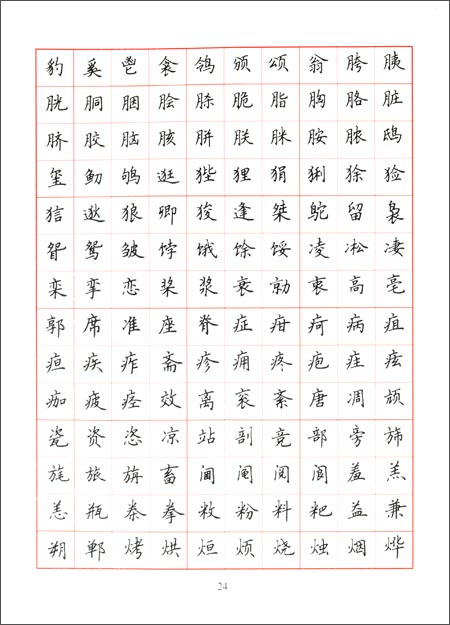 豹奚鬯衾鸰颁颂翁胯胰
胱胴胭脍脎脆脂胸胳脏
脐胶脑胲胼朕脒胺脓鸱
玺鱽鸲逛狴狸狷猁狳猃
狺逖狼卿狻逢桀鸵留袅
眢鸳皱饽饿馀馁凌凇凄
栾挛恋桨浆衰勍衷高亳
郭席准座脊症疳疴病疽
疸疾痄斋疹痈疼疱疰痃
痂疲痉效离衮紊唐凋颃
瓷资恣凉站剖竞部旁旆
旄旅旃畜阃阄阅阆羞羔
恙瓶桊拳敉粉料粑益兼
朔郸烤烘烜烦烧烛烟烨
24